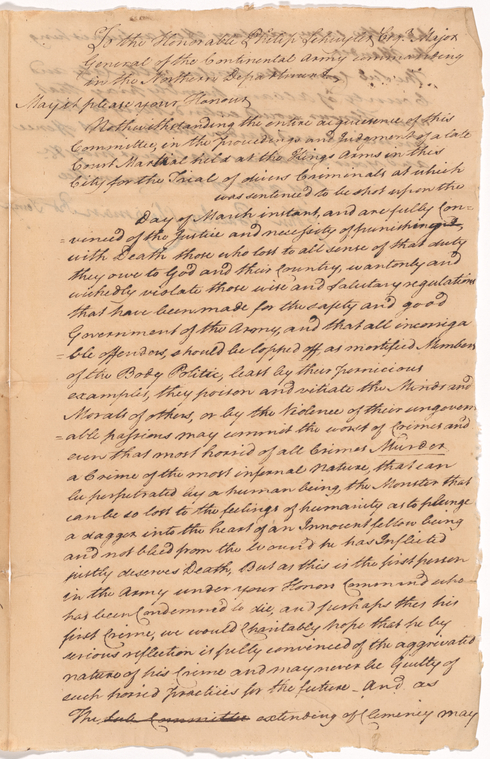 To the Honorable Philip Schuyler Esqr. Major
General of the Continental Army commanding
in the Northern Department
May it please your Honour
Nothwithstanding the entire acquiescence of this
Committee, in the proceedings and Judgment of a late
Court Martial held at the Kings Arms in this
City for the Trials of divers Criminals at which
was sentenced to be shot upon the
Day of March instant, and are fully Con-
=vinced of the Justice and necessity of punishing
with Death those who lost to all sense of that duty
they owe to God and their Country, wantonly and
wickedly violate those wise and salutary regulations
that have been made for the safety and good
Government of the Army, and that all incorriga
=ble offenders, should be lopped off, as mortified Members
of the Body Politic, least by their pernicious
examples, they poison and vitiate the Minds and
Morals of others, or by the Violence of their ungovern
=able passions may commit the worst of Crimes and
even that most horrid of all Crimes Murder
a Crime of the most infernal nature, that can
be perpetrated by a human being, the Monster that
can be so lost to the feelings of humanity as to plunge
a dagger into the heart of an Innocent fellow being
and not bleed from the wound he has Inflicted
justly deserves Death, But as this is the first person
in the Army under your Honors Command who
had been Condemned to die, and perhaps this his
first Crime, we would Charitably hope that he by
serious reflection is fully convinced of the aggrivated
nature of his Crime and may never be Guilty of
such horrid Practices for the future And as
The Sub Committee extending of Clemency may